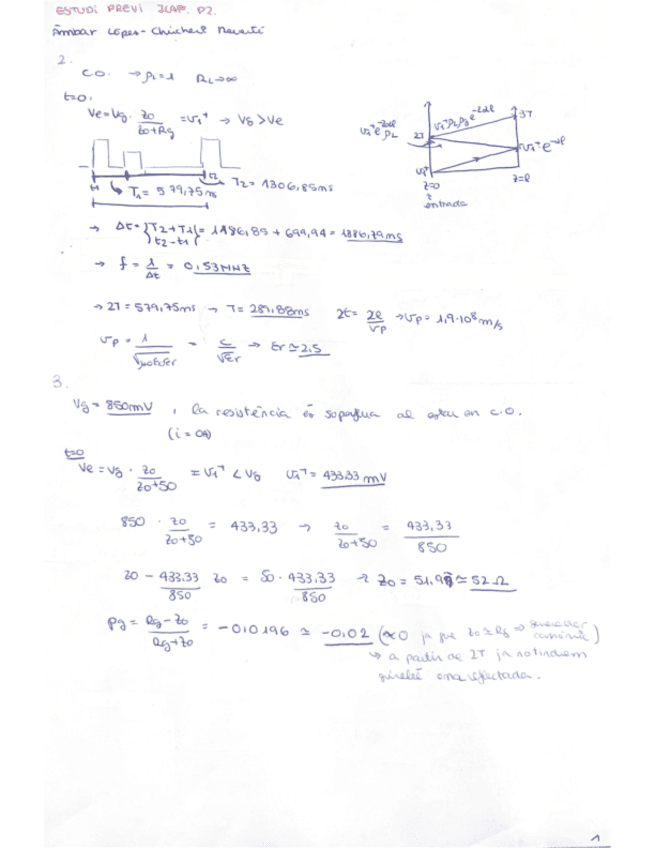 ESTUDI PREVI 2LAP. P2.
Àmbar López-Chicheri Nevertí
2.
C.O. → ρL=1 RL→∞
t=0.
Ve=Vg. Zo/(Zo+Rg) = V1⁺ → Vg > Ve
V1⁺e⁻²ᵅˡρL
2T
V1⁺ρLρg e⁻²ᵅˡ
3T
V1⁺e⁻ᵅˡ
V1⁺
z=0
z=l
entrada
t2
T1= 579,75ns
T2= 1306,85ns
→ Δt= {T2+T1 = 1186,85 + 699,94 = 1886,79 ns
t2-t1
→ f= 1/Δt = 0,53MHz
→ 2T= 579,75ns → T= 289,88ns 2t= 2l/vp → vp= 1,9·10⁸ m/s
vp= 1/√μoεoεr = c/√εr → εr≃2,5
3.
Vg= 850mV , la resistència és superflua al estar en C.O.
(i=0A)
t=0
Ve=Vg· Zo/(Zo+50) = V1⁺ < Vg V1⁺= 433,33 mV
850 · Zo/(Zo+50) = 433,33 → Zo/(Zo+50) = 433,33/850
Zo - 433,33/850 Zo = 50· 433,33/850 → Zo= 51,98 ≃ 52Ω
ρg= (Rg-Zo)/(Rg+Zo) = -0,0196 ≃ -0,02 (≈0 ja que Zo≃Rg → generador canònic)
→ a partir de 2T ja no tindrem
gairebé ona reflectada.
1